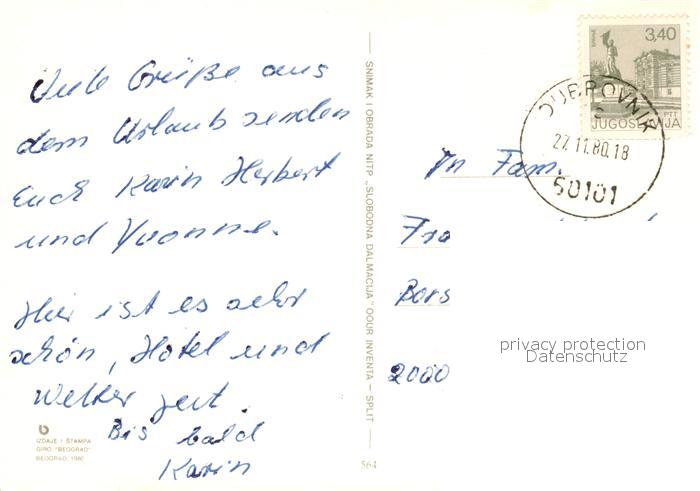 Viele Grüße aus
dem Urlaub senden
Euch Karin Herbert
und Yvonne.
Hier ist es sehr
schön, Hotel und
Wetter gut.
Bis bald
Karin
IZDAJE I ŠTAMPA
GIRO "BEOGRAD"
BEOGRAD, 1980
SNIMAK I OBRADA NITP „SLOBODNA DALMACIJA" OOUR INVENTA – SPLIT
564
3,40
PTT
JUGOSLAVIJA
DUBROVNIK
27.11.80.18
50101
Fam.
Fra
Bors
2000
privacy protection
Datenschutz